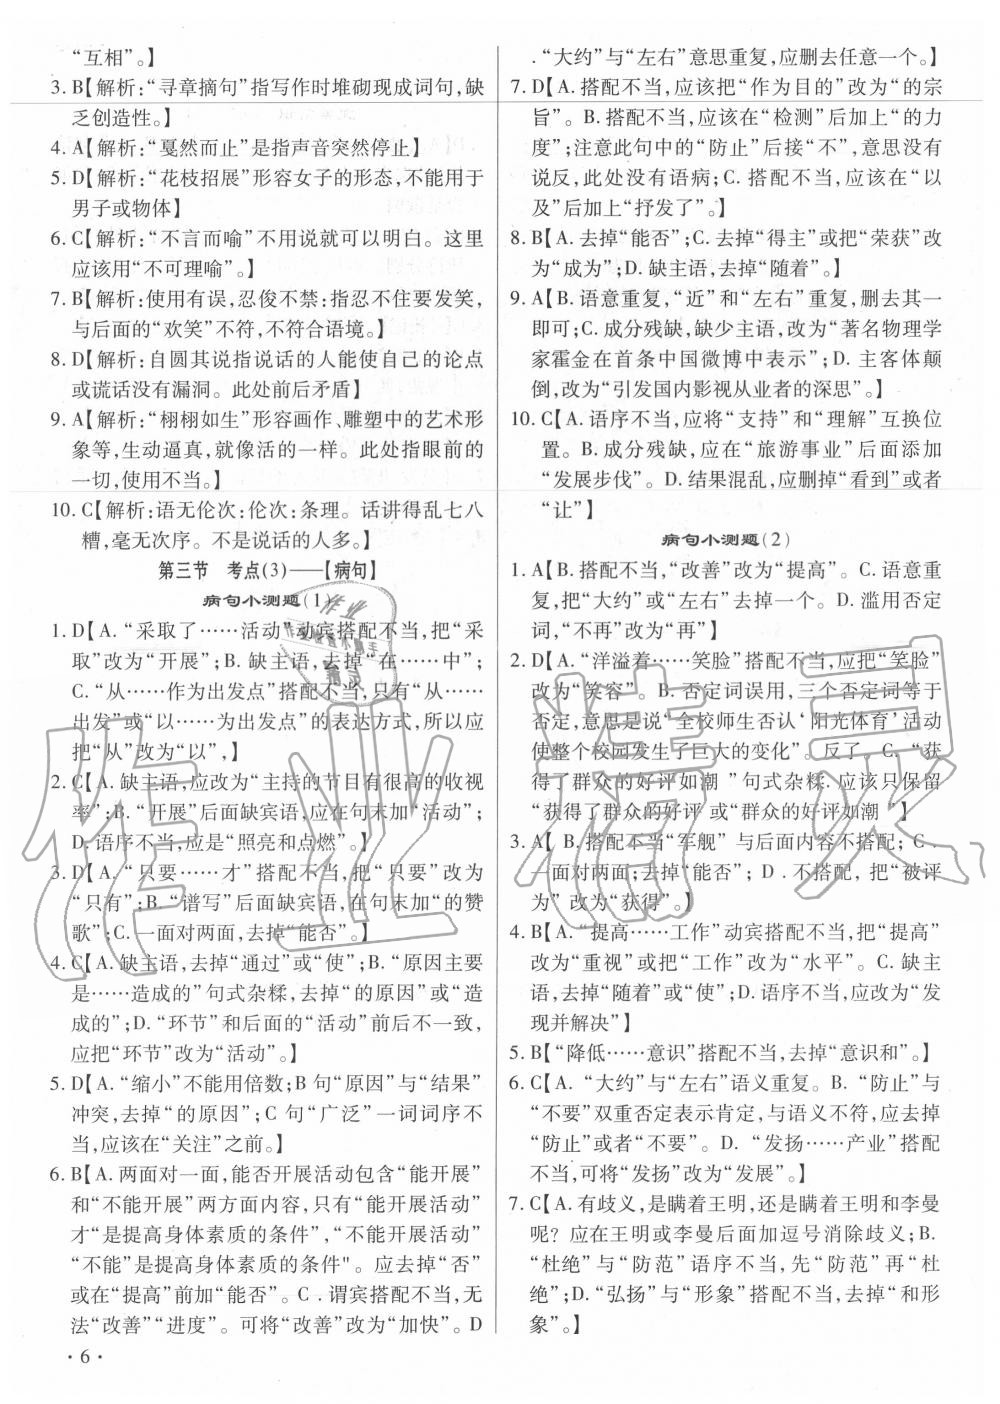 “互相”。】
3. B【解析：“寻章摘句”指写作时堆砌现成词句，缺
乏创造性。】
4. A【解析：“戛然而止”是指声音突然停止】
5. D【解析：“花枝招展”形容女子的形态，不能用于
男子或物体】
6. C【解析：“不言而喻”不用说就可以明白。这里
应该用“不可理喻”。】
7. B【解析：使用有误，忍俊不禁：指忍不住要发笑，
与后面的“欢笑”不符，不符合语境。】
8. D【解析：自圆其说指说话的人能使自己的论点
或谎话没有漏洞。此处前后矛盾】
9. A【解析：“栩栩如生”形容画作、雕塑中的艺术形
象等，生动逼真，就像活的一样。此处指眼前的
一切，使用不当。】
10. C【解析：语无伦次：伦次：条理。话讲得乱七八
糟，毫无次序。不是说话的人多。】
第三节 考点(3)——【病句】
病句小测题(1)
1. D【A. “采取了……活动”动宾搭配不当，把“采
取”改为“开展”；B. 缺主语，去掉“在……中”；
C. “从……作为出发点”搭配不当，只有“从……
出发”或“以……为出发点”的表达方式，所以应
把“从”改为“以”，】
2. C【A. 缺主语，应改为“主持的节目有很高的收视
率”；B. “开展”后面缺宾语，应在句末加“活动”；
D. 语序不当，应是“照亮和点燃”。】
3. D【A. “只要……才”搭配不当，把“只要”改为
“只有”；B. “谱写”后面缺宾语，在句末加“的赞
歌”；C. 一面对两面，去掉“能否”。】
4. C【A. 缺主语，去掉“通过”或“使”；B. “原因主要
是……造成的”句式杂糅，去掉“的原因”或“造
成的”；D. “环节”和后面的“活动”前后不一致，
应把“环节”改为“活动”。】
5. D【A. “缩小”不能用倍数；B 句“原因”与“结果”
冲突，去掉“的原因”；C 句“广泛”一词词序不
当，应该在“关注”之前。】
6. B【A. 两面对一面，能否开展活动包含“能开展”
和“不能开展”两方面内容，只有“能开展活动”
才“是提高身体素质的条件”，“不能开展活动”
“不能”是提高身体素质的条件"。应去掉“否”
或在“提高”前加“能否”。C . 谓宾搭配不当，无
法“改善”“进度”。可将“改善”改为“加快”。D
. “大约”与“左右”意思重复，应删去任意一个。】
7. D【A. 搭配不当，应该把“作为目的”改为“的宗
旨”。B. 搭配不当，应该在“检测”后加上“的力
度”；注意此句中的“防止”后接“不”，意思没有
说反，此处没有语病；C. 搭配不当，应该在“以
及”后加上“抒发了”。】
8. B【A. 去掉“能否”；C. 去掉“得主”或把“荣获”改
为“成为”；D. 缺主语，去掉“随着”。】
9. A【B. 语意重复，“近”和“左右”重复，删去其一
即可；C. 成分残缺，缺少主语，改为“著名物理学
家霍金在首条中国微博中表示”；D. 主客体颠
倒，改为“引发国内影视从业者的深思”。】
10. C【A. 语序不当，应将“支持”和“理解”互换位
置。B. 成分残缺，应在“旅游事业”后面添加
“发展步伐”。D. 结果混乱，应删掉“看到”或者
“让”】
病句小测题(2)
1. A【B. 搭配不当，“改善”改为“提高”。C. 语意重
复，把“大约”或“左右”去掉一个。D. 滥用否定
词，“不再”改为“再”】
2. D【A. “洋溢着……笑脸”搭配不当，应把“笑脸”
改为“笑容”。B. 否定词误用，三个否定词等于
否定，意思是说“全校师生否认‘阳光体育’活动
使整个校园发生了巨大的变化”。反了。C. “获
得了群众的好评如潮 ”句式杂糅. 应该只保留
“获得了群众的好评 或“群众的好评如潮 ”】
3. A【B. 搭配不当“军舰” 与后面内容不搭配；C
. 一面对两面；去掉“能否”； D . 不搭配，把“被评
为” 改为“获得”。】
4. B【A. “提高……工作”动宾搭配不当，把“提高”
改为“重视”或把“工作”改为“水平”。C. 缺主
语，去掉“随着”或“使”；D. 语序不当，应改为“发
现并解决”】
5. B【“降低……意识”搭配不当，去掉“意识和”。】
6. C【A. “大约”与“左右”语义重复。B. “防止”与
“不要”双重否定表示肯定，与语义不符，应去掉
“防止”或者“不要”。D. “发扬……产业”搭配
不当，可将“发扬”改为“发展”。】
7. C【A. 有歧义，是瞒着王明，还是瞒着王明和李曼
呢？应在王明或李曼后面加逗号消除歧义；B.
“杜绝”与“防范”语序不当，先“防范”再“杜
绝”；D. “弘扬”与“形象”搭配不当，去掉“和形
象”。】
· 6 ·
作业精灵